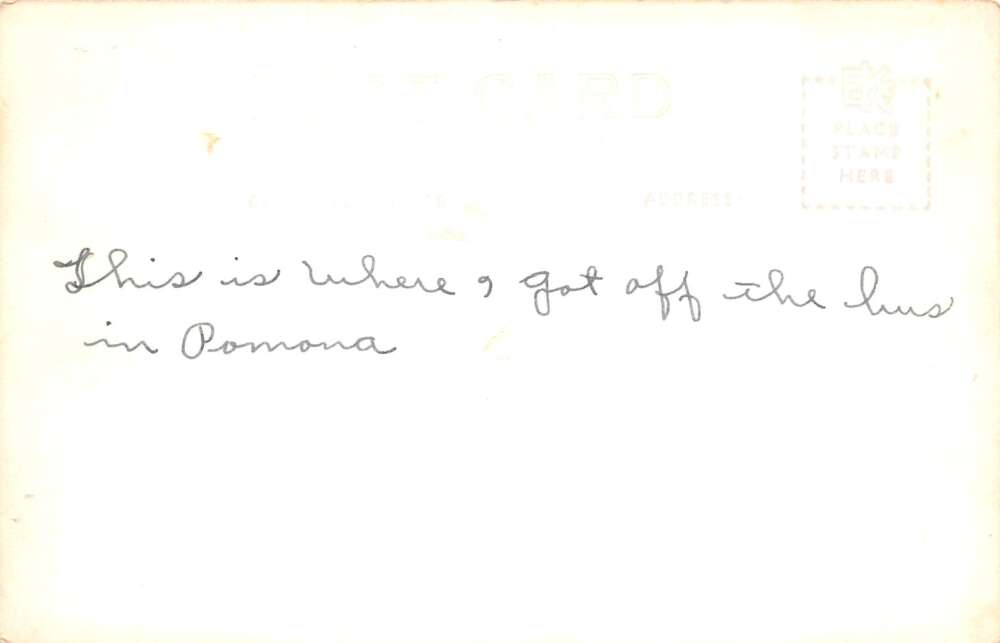 POST CARD
EKC
PLACE
STAMP
HERE
ADDRESS
This is where I got off the bus
in Pomona